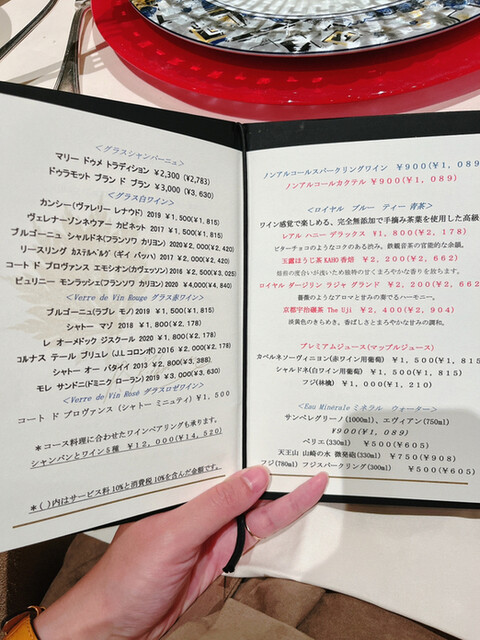 <グラスシャンパーニュ>
マリー ドゥメ トラディション ¥2,300(¥2,783)
ドゥラモット ブラン ド ブラン ¥3,000(¥3,630)
<グラス白ワイン>
カンシー(ヴァレリー レナウド) 2019 ¥1,500(¥1,815)
ヴェレナーゾンネウアー カビネット 2017 ¥1,500(¥1,815)
ブルゴーニュ シャルドネ(フランソワ カリヨン) 2020 ¥2,000(¥2,420)
リースリング カステルベルグ (ギイ バッハ) 2017 ¥2,000(¥2,420)
コート ド プロヴァンス エモシオン(カヴェッソン) 2016 ¥2,500(¥3,025)
ピュリニー モンラッシェ(フランソワ カリヨン) 2020 ¥4,000(¥4,840)
<Verre de Vin Rouge グラス赤ワイン>
ブルゴーニュ(ラブレ モノ) 2019 ¥1,500(¥1,815)
シャトー マゾ 2018 ¥1,800(¥2,178)
レ オーメドック ジスクール 2020 ¥1,800(¥2,178)
コルナス テール ブリュレ (J.L コロンボ) 2016 ¥2,000(¥2,178)
シャトー オー バタイイ 2013 ¥2,800(¥3,388)
モレ サンドニ(ドミニク ローラン) 2019 ¥3,000(¥3,630)
<Verre de Vin Rosé グラスロゼワイン>
コート ド プロヴァンス (シャトー ミニュティ) ¥1,500
*コース料理に合わせたワインペアリングも承ります。
シャンパンとワイン5種 ¥12,000(¥14,520)
*( )内はサービス料10%と消費税10%を含んだ金額です。
ノンアルコールスパークリングワイン ¥900(¥1,089
ノンアルコールカクテル ¥900(¥1,089)
<ロイヤル ブルー ティー 青茶>
ワイン感覚で楽しめる、完全無添加で手摘み茶葉を使用した高級
レアル ハニー デラックス ¥1,800(¥2,178)
ビターチョコのようなコクのある渋み。鉄観音茶の官能的な余韻。
玉露ほうじ茶 KAHO 香焙 ¥2,200(¥2,662)
焙煎の度合いが浅いため独特の甘くまろやかな香りを放ちます。
ロイヤル ダージリン ラジャ グランド ¥2,200(¥2,662
薔薇のようなアロマと甘みの奏でるハーモニー。
京都宇治碾茶 The Uji ¥2,400(¥2,904)
淡黄色のきらめき。香ばしさとまろやかな甘みの調和。
プレミアムジュース(マップルジュース)
カベルネソーヴィニヨン(赤ワイン用葡萄) ¥1,500(¥1,815
シャルドネ(白ワイン用葡萄) ¥1,500(¥1,815)
フジ(林檎) ¥1,000(¥1,210)
<Eau Minérale ミネラル ウォーター>
サンペレグリーノ(1000ml)、エヴィアン(750ml)
¥900(¥1,089)
ペリエ(330ml) ¥500(¥605)
天王山 山崎の水 微発砲(330ml) ¥750(¥908)
フジ(780ml) フジスパークリング(300ml) ¥500(¥605)